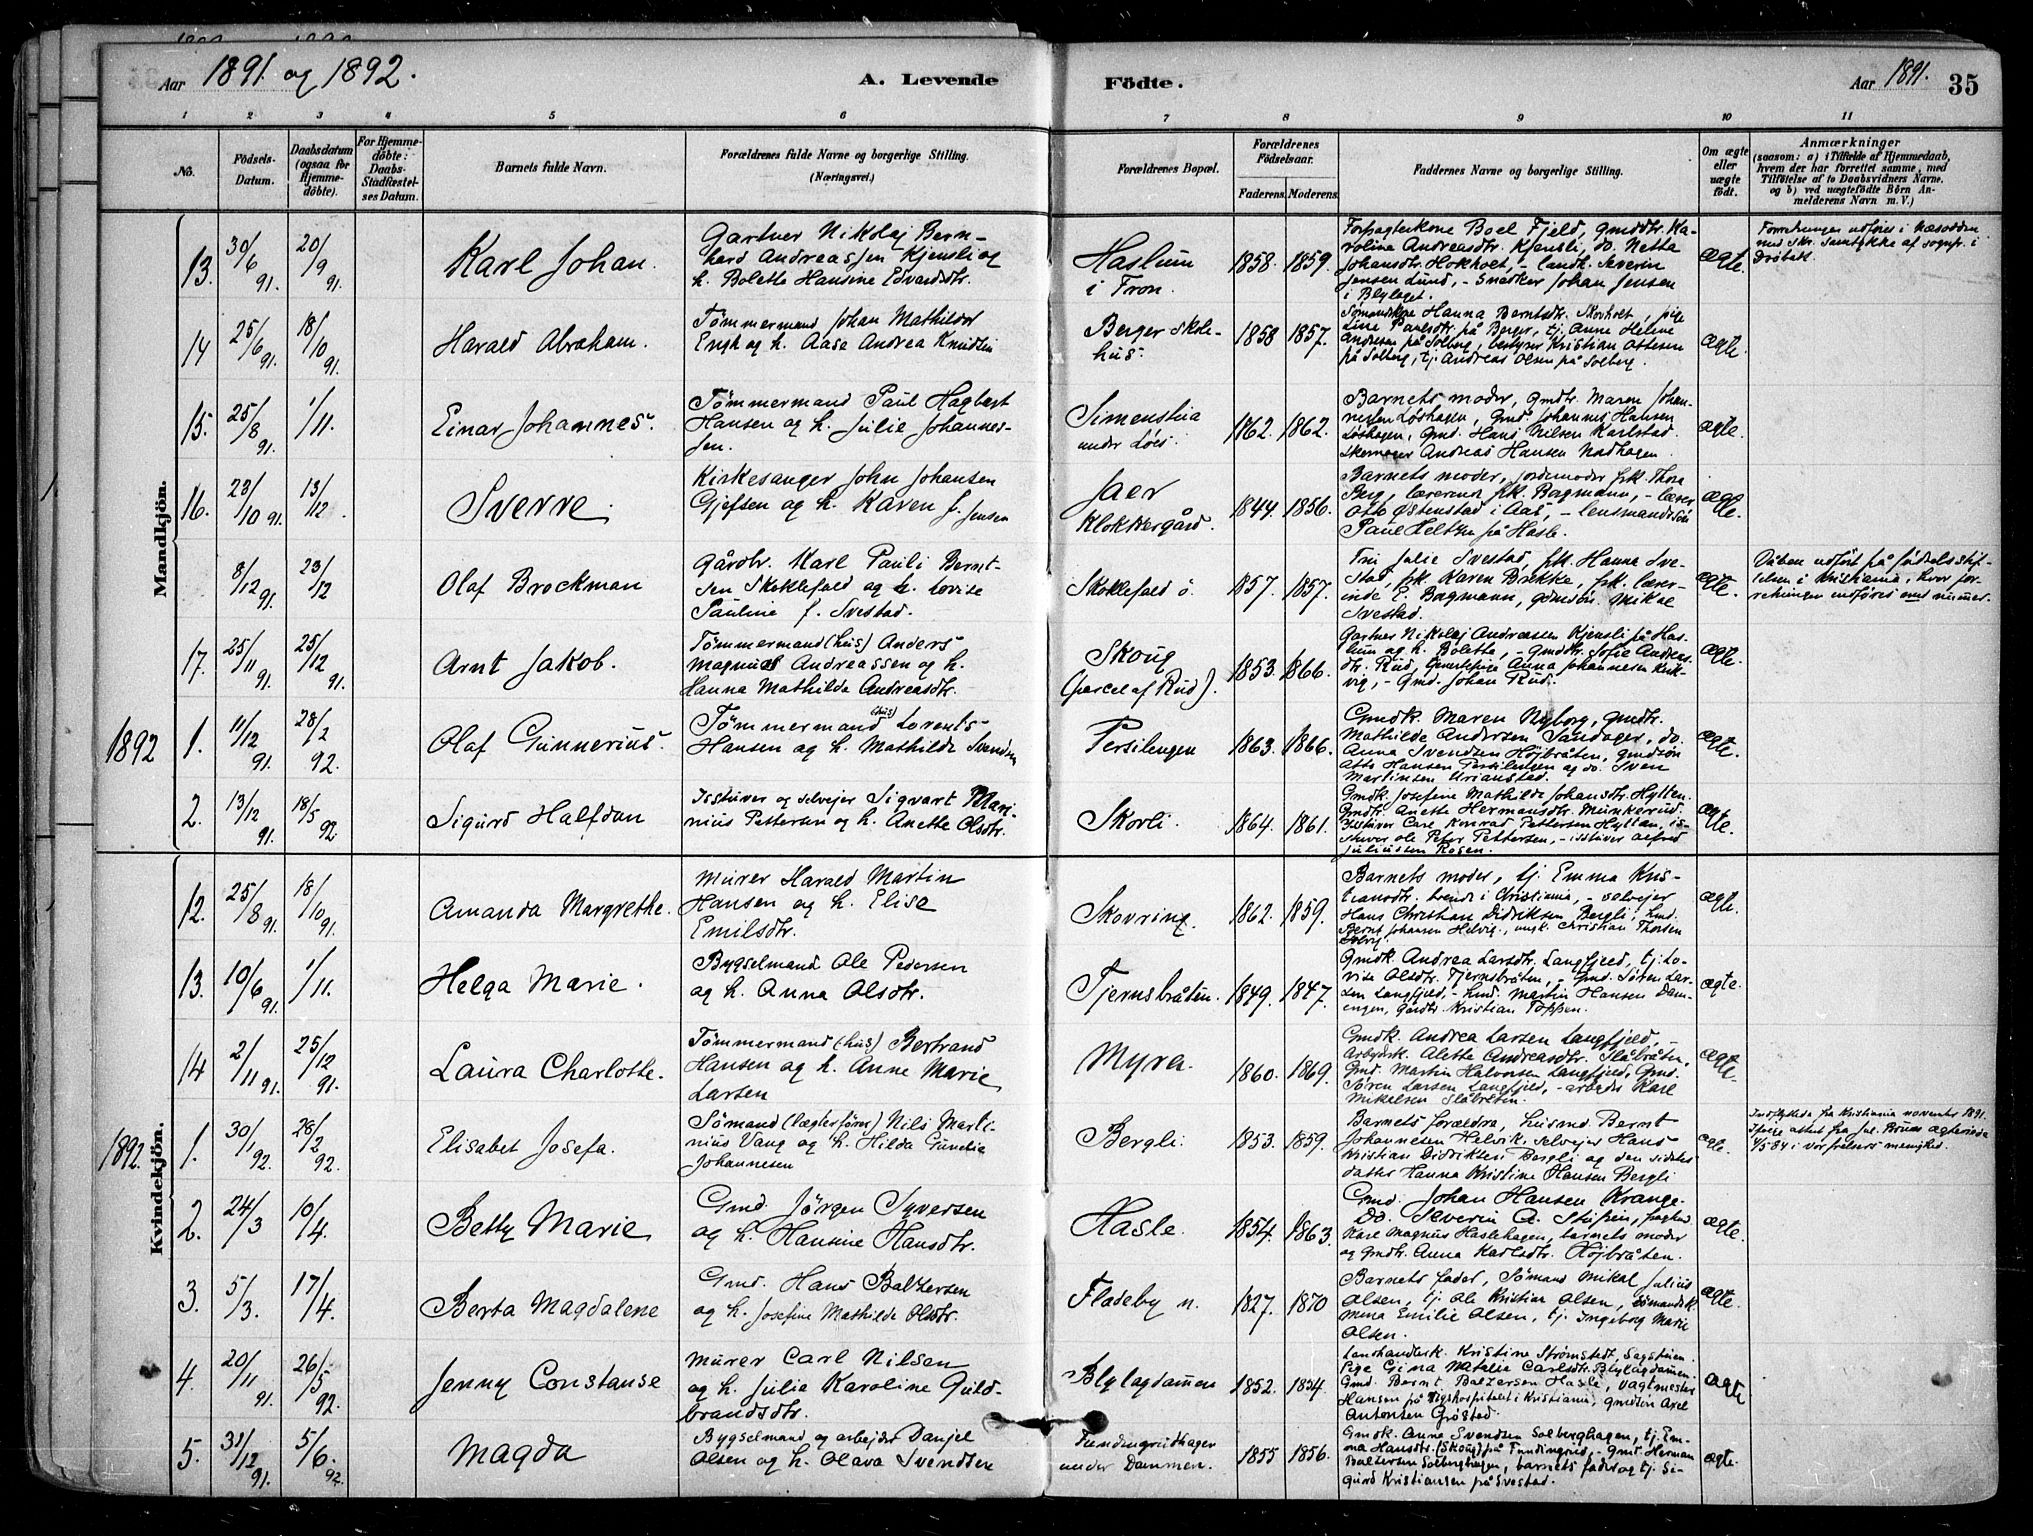 Aar 1891. og 1892.
A. Levende
Födte.
Aar 1891.
35
1 2 3 4 5 6 7 8 9 10 11
No.
Födsels-
Datum.
Daabsdatum
(ogsaa for
Hjemme-
döbte).
For Hjemme-
döbte:
Daabs-
Stadfæstel-
ses Datum.
Barnets fulde Navn.
Forældrenes fulde Navne og borgerlige Stilling.
(Næringsvei.)
Forældrenes Bopæl.
Forældrenes
Födselsaar.
Faderens.
Moderens.
Faddernes Navne og borgerlige Stilling.
Om ægte
eller
uægte
födt.
Anmærkninger
(saasom: a) i Tilfælde af Hjemmedaab,
hvem der har forrettet samme, med
Tilföielse af to Daabsvidners Navne.
og b) ved uægtefödte Börn An-
melderens Navn m. V.)
Mandkjön.
13. 30/6 91. 20/9 91.
Karl Johan.
Gartner Nikolaj Bern-
hard Andreassen Kjensli og
h. Bolette Hansine Edvardsdtr.
Haslum
i Fron.
1858. 1859.
Forpagterkone Boel Fjeld, gmddtr. Ka-
roline Andreasdtr. Kjensli, do. Netta
Johansdtr. Hokholt, - landh. Severin
Jensen Lund, - Snedker Johan Jensen
i Blylaget.
ægte.
Forretningen udföres i Næsodden
med skr. samtykke af sognepr. i
Dröbak.
14 25/6 91. 18/10 91.
Harald Abraham.
Tömmermand Johan Mathilder
Engh og h. Aasa Andrea Knudsen
Berger skole-
hus.
1858 1857.
Sömandskone Hanna Berntsdtr. Skorholt, pige
Line Paulsdtr. på Berger, tj. Anne Helene
Andersen på Solberg, bestyrer Kristian Ottesen
på Solberg, tj. Andreas Olsen på Solberg.
ægte.
15. 25/8 91. 1/11.
Einar Johannes.
Tömmermand Paul Hagbart
Hansen og h. Julie Johannes-
sen.
Simenstua
under Löes.
1862. 1862.
Barnets moder, gmdtr. Maren Johan-
nessen Löshagen, gmd. Johannes Hansen
Löshagen, gmd. Hans Nilsen Karlstad.
Skomager Andreas Hansen Nadhagen.
ægte.
16. 23/10 91. 13/12.
Sverre.
Kirkesanger John Johansen
Gjefsen og h. Karen f. Jensen
Jaer
Klokkergård.
1844. 1856.
Barnets moder, jordemoder frk. Thora
Berg, lærerinde frk. Bagmann, - lærer
Otto Östenstad i Aas, - lensmandssön
Paul Heltzen på Hasle.
ægte.
8/12 91. 23/12
Olaf Brockman
Gårdbr. Karl Pauli Bernt-
sen Skoklefald og h. Lovise
Pauline f. Svestad.
Skoklefald ö.
1857. 1857.
Fru Julie Svestad, frk. Hanna Sve-
stad, frk. Karen Brekke, frk. lærer-
inde E. Bagmann, gdmdsön. Mikal
Svestad.
ægte.
Dåben udfört på födselsstif-
telsen i Kristiania, hvor for-
retningen indföres med numer.
17. 25/11 91. 25/12 91.
Arnt Jakob.
Tömmermand (hus) Anders
Magnus Andreassen og h.
Hanna Mathilde Andreasdtr.
Skoug
(parcel af Rud).
1853. 1866.
Gartner Nikolaj Andreassen Kjensli på Has-
lum og h. Bolette, - gmdtr. Sofie Andreas-
dtr. Rud, Anna Johannesen Kirk-
vig, - gmd. Johan Rud.
ægte.
1892
1. 11/12 91. 28/2 92.
Olaf Gunnerius.
Tömmermand (hus) Lorents
Hansen og h. Mathilde Svendsen
Persilengen
1863. 1866.
Gmdk. Maren Nyborg, gmdtr.
Mathilde Andersen Sandager, do.
Anna Svendsen Höjbråten, gmdsön
Otto Hansen Persilengen og do. Sven
Martinsen Urianstad.
ægte.
2. 13/12 91. 18/5 92.
Sigurd Halfdan
Isstuver og selvejer Sigvart Mari-
nius Pettersen og h. Anette Olsdtr.
Skorli.
1864. 1861.
Gmdk. Josefine Mathilde Johansdtr. Hytten.
Gmdtr. Anette Hermansdtr. Munkerud.
Isstuver Carl Konrad Pettersen Hyttan, is-
stuver Ole Peter Pettersen, - isstuver Alfred
Juliussen Rosen.
ægte.
Kvindekjön.
12. 25/8 91. 18/10 91.
Amanda Margrethe.
Murer Harald Martin
Hansen og h. Elise
Emilsdtr.
Skovring.
1862. 1859.
Barnets moder, tj. Emma Kris-
tiansdtr. boende i Christiania, - selvejer
Hans Christian Didriksen Bergli, hmd.
Bernt Johansen Helvig, ungk. Christian Thorsen
Solvig.
ægte.
13. 10/6 91. 1/11.
Helga Marie.
Bygselmand Ole Pedersen
og h. Anna Olsdtr.
Tjernsbråten.
1849. 1847.
Gmdk. Andrea Larsdtr. Langfjeld, tj. Lo-
vise Olsdtr. Tjernsbråten, - Gmd. Sören Lar-
sen Langfjeld, - hmd. Martin Hansen Dam-
engen, Gårdbr. Kristian Toppen.
ægte.
14 2/11 91. 25/12 91.
Laura Charlotte.
Tömmermand (hus) Bertrand
Hansen og h. Anne Marie
Larsen
Myra.
1860. 1869.
Gmdk. Andrea Larsen Langfjeld, -
Arbejdsk. Alette Andreasdtr. Slåbråten
Gmd. Martin Halvorsen Langfjeld, Gmd.
Sören Larsen Langfjeld, - arbejdr Karl
Mikelsen Slåbråten.
ægte.
1892.
1. 30/1 92. 28/2 92.
Elisabet Josefa.
Sömand (lægterförer) Nils Marti-
nius Vang og h. Hilda Gunelia
Johannesen
Bergli.
1853. 1859.
Barnets forældre, husmd Bernt
Johannesen Helvik, selvejer Hans
Kristian Didriksen Bergli og den sidstes
datter Hanna Kristine Hansen Bergli
ægte.
Indflyttede fra Kristiania november 1891.
Ifölge attest fra Bruun ægteviede
4/5 84 i vor frelsers menighed.
2. 24/3 10/4.
Betty Marie
Gmd. Jörgen Syversen
og h. Hansine Hansdtr.
Hasle.
1854. 1863.
Gmd. Johan Hansen Krange.
Do. Severin A. Stupin,
Karl Magnus Haslehagen, barnets moder
og gmdtr. Anna Karlsdtr. Höjbråten.
ægte.
3. 5/3. 17/4.
Berta Magdalene
Gmd. Hans Baltzersen
og h. Josefine Mathilde Olsdtr.
Fladeby n.
1827. 1870
Barnets fader, Sömand Mikal Julius
Olsen, tj. Ole Kristian Olsen, sömandsk.
Mina Emilie Olsen, tj. Ingeborg Marie
Olsen.
ægte.
4. 20/11 91. 26/5 92.
Jenny Constanse
Murer Carl Nilsen
og h. Julia Karoline Guld-
brandsdtr.
Blylagdammen
1852. 1854.
Landhandlersk. Kristine Strömstedt, Sagstuen.
Pige Gina Natalia Carlsdtr. Blylagdammen.
Gmd. Bernt Baltzersen Hasle, vagtmester
Hansen på Rigshospitalet i Kristiania, gmdsön Axel
Antonsen Gröstad.
ægte
5. 31/12 91. 5/6. 92.
Magda
Bygselmand og arbejder Danjel
Olsen og h. Olava Svendsen
Fundingrudhagen
under Dammen.
1855 1856.
Gmdk. Anne Svendsen Solberghagen, tj. Em-
ma Hansdtr. (Skoug) på Fundingrud, - gmd. Herman
Baltzersen Solberghagen, barnets fader og tj. Si-
gurd Kristiansen på Svestad.
ægte.